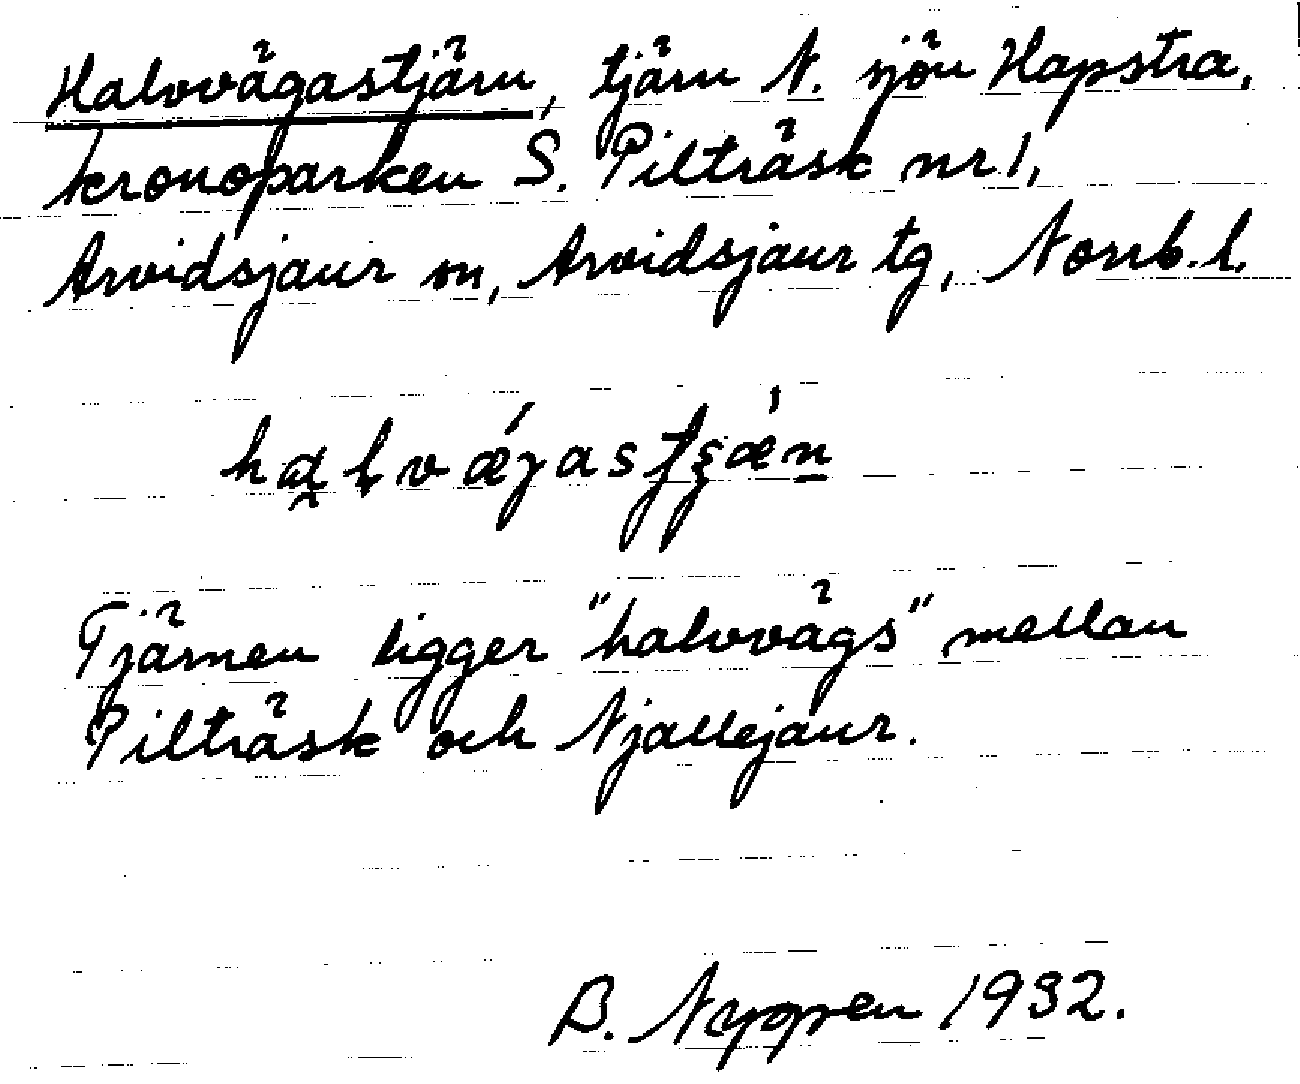 Halvvägastjärn, tjärn N. sjön Hapstra,
kronoparken S. Pilträsk nr 1,
Arvidsjaur sn, Arvidsjaur tg, Norrb. l.
Tjärnen ligger "halvvägs" mellan
Pilträsk och Njallejaur.
B. Nygren 1932.